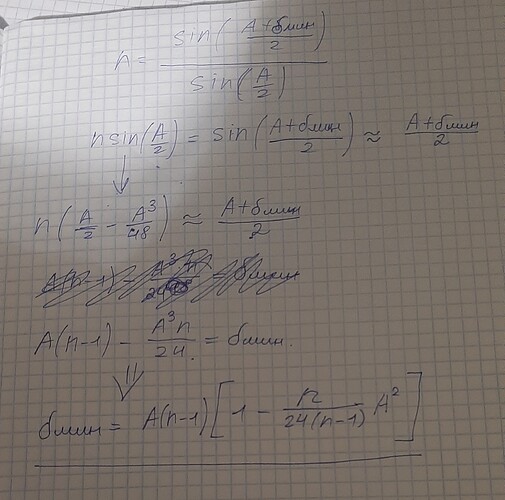 n = sin((A+δмин)/2) / sin(A/2)
n sin(A/2) = sin((A+δмин)/2) ≈ (A+δмин)/2
↓
n(A/2 - A³/48) ≈ (A+δмин)/2
A(n-1) - A³n/24 = δмин.
⇓
δмин = A(n-1)[1 - n/(24(n-1)) A²]